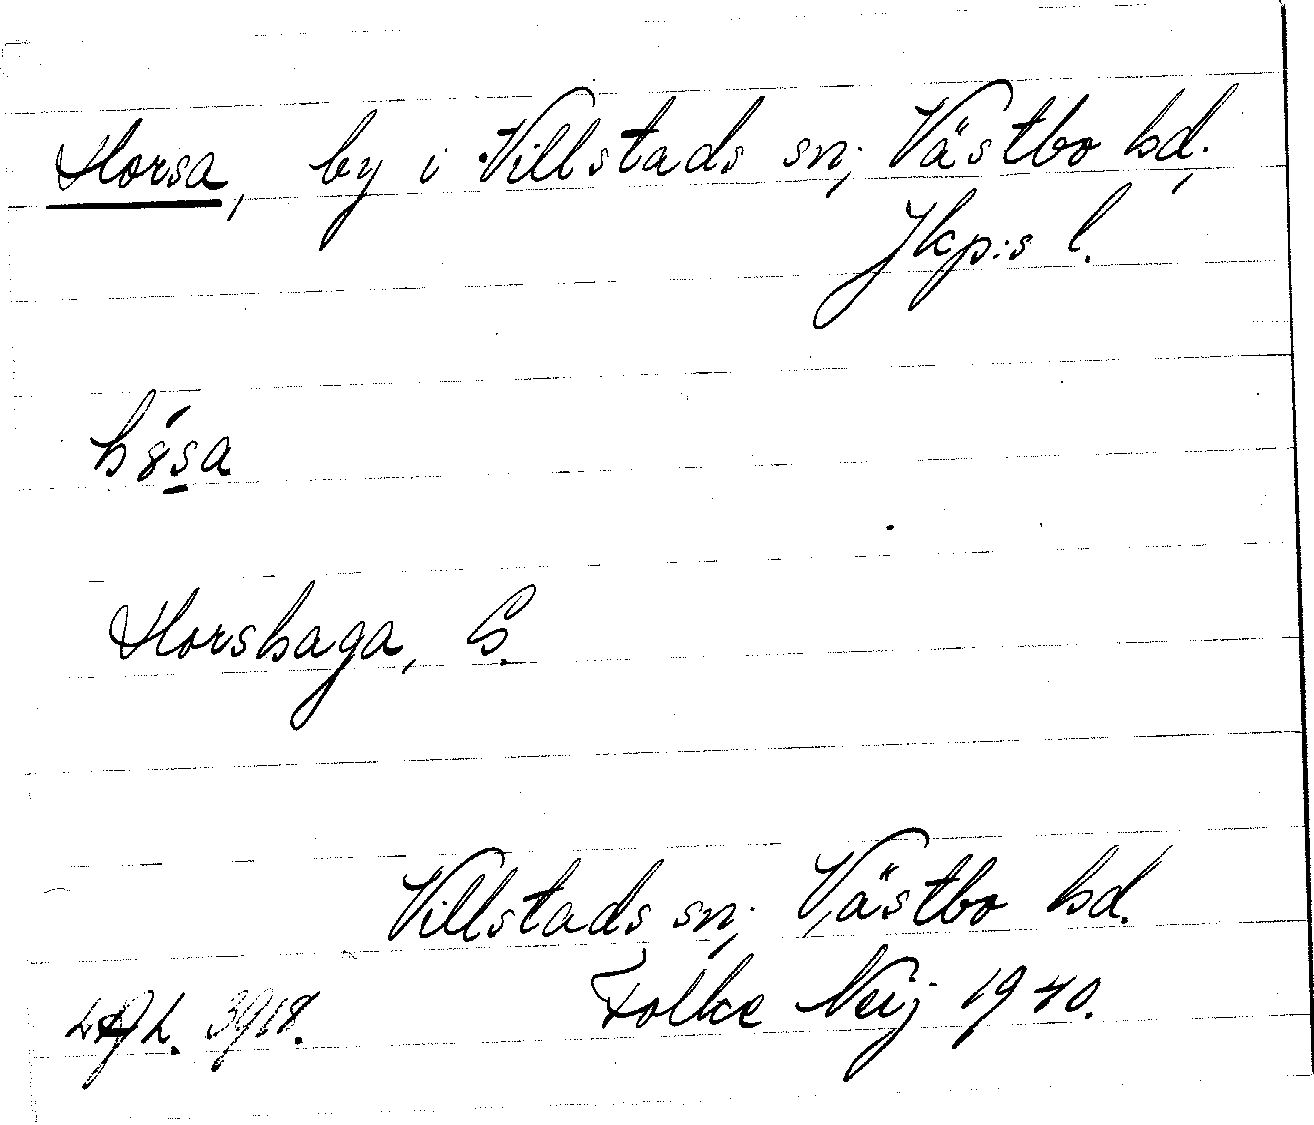 Horsa, by i Villstads sn, Västbo hd.,
Jkp:s l.
Horshaga, S.
Villstads sn, Västbo hd.
Folke Neij 1940.
3918.